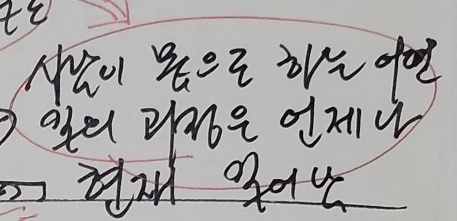 사람이 몸으로 하는 어떤
일의 과정은 언제나
현재 일어난